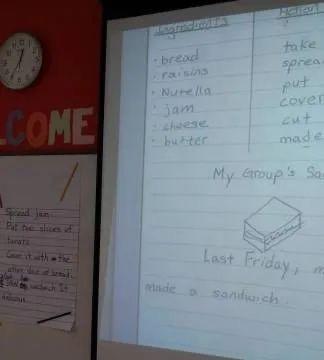 COME
Spread jam.
Put two slices of
tomato
Cover it with the
other slice of bread.
sandwich It
delicious.
Ingredients
Action
• bread
• raisins
• Nutella
• jam
• cheese
• butter
take
sprea
put
cover
cut
made
My Group's Sa
Last Friday, m
made a sandwich.